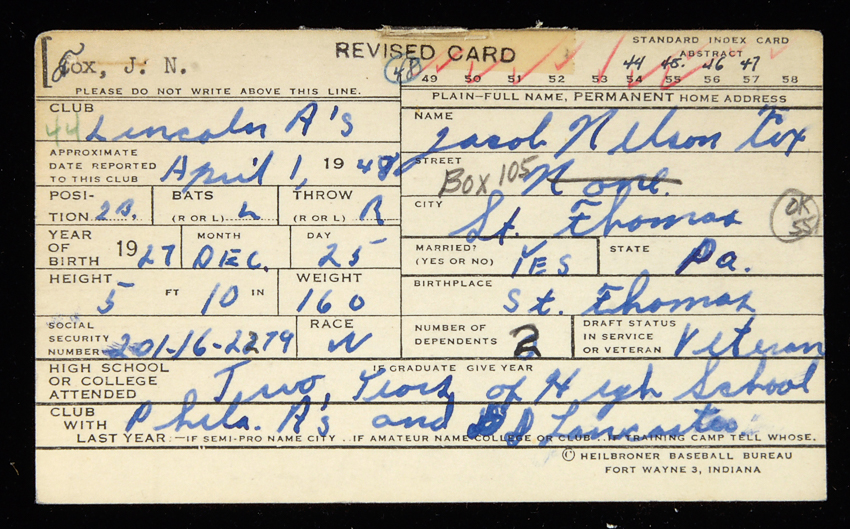 Fox, J. N.
REVISED CARD
STANDARD INDEX CARD
ABSTRACT
44 45. 46 47
48 49 50 51 52 53 54 55 56 57 58
PLEASE DO NOT WRITE ABOVE THIS LINE.
PLAIN-FULL NAME, PERMANENT HOME ADDRESS
CLUB
44 Lincoln A's
NAME
Jacob Nelson Fox
APPROXIMATE
DATE REPORTED
TO THIS CLUB
April 1, 1948
STREET
Box 105 None.
POSI-
TION 2B.
BATS
(R OR L) L
THROW
(R OR L) R
CITY
St. Thomas
OK
55
YEAR
OF
BIRTH
1927
MONTH
DEC.
DAY
25
MARRIED?
(YES OR NO) YES
STATE
Pa.
HEIGHT
5 FT 10 IN
WEIGHT
160
BIRTHPLACE
St. Thomas
SOCIAL
SECURITY
NUMBER 201-16-2279
RACE
W
NUMBER OF
DEPENDENTS 2
DRAFT STATUS
IN SERVICE
OR VETERAN Veteran
HIGH SCHOOL
OR COLLEGE
ATTENDED
IF GRADUATE GIVE YEAR
Two Years of High School
CLUB
WITH
LAST YEAR
Phila. A's and Lancaster
—IF SEMI-PRO NAME CITY . . IF AMATEUR NAME COLLEGE OR CLUB . . IF TRAINING CAMP TELL WHOSE.
© HEILBRONER BASEBALL BUREAU
FORT WAYNE 3, INDIANA